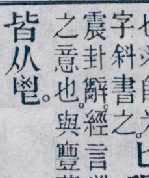 字斜書之。
震卦辭。經言
之意也。與豐
皆从鬯。